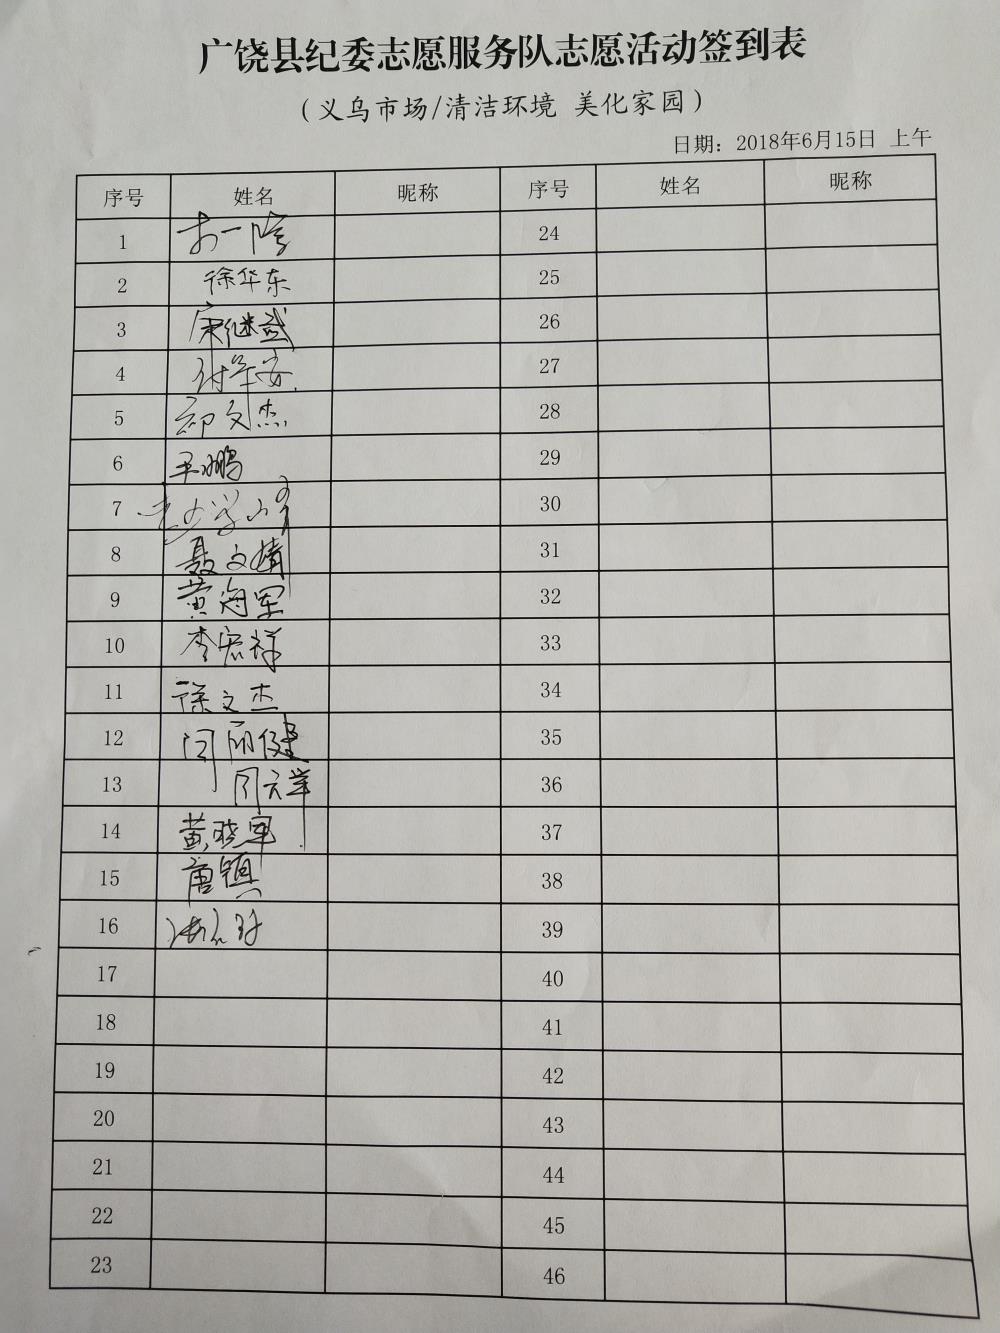 广饶县纪委志愿服务队志愿活动签到表
（义乌市场/清洁环境 美化家园）
日期：2018年6月15日 上午
序号 姓名 昵称 序号 姓名 昵称
1 24
2 徐华东 25
3 继武 26
4 27
5 文杰 28
6 王鹏 29
7 30
8 聂文婧 31
9 黄海军 32
10 李宏祥 33
11 徐文杰 34
12 闫丽健 35
13 周云峰 36
14 黄晓军 37
15 唐镇 38
16 39
17 40
18 41
19 42
20 43
21 44
22 45
23 46